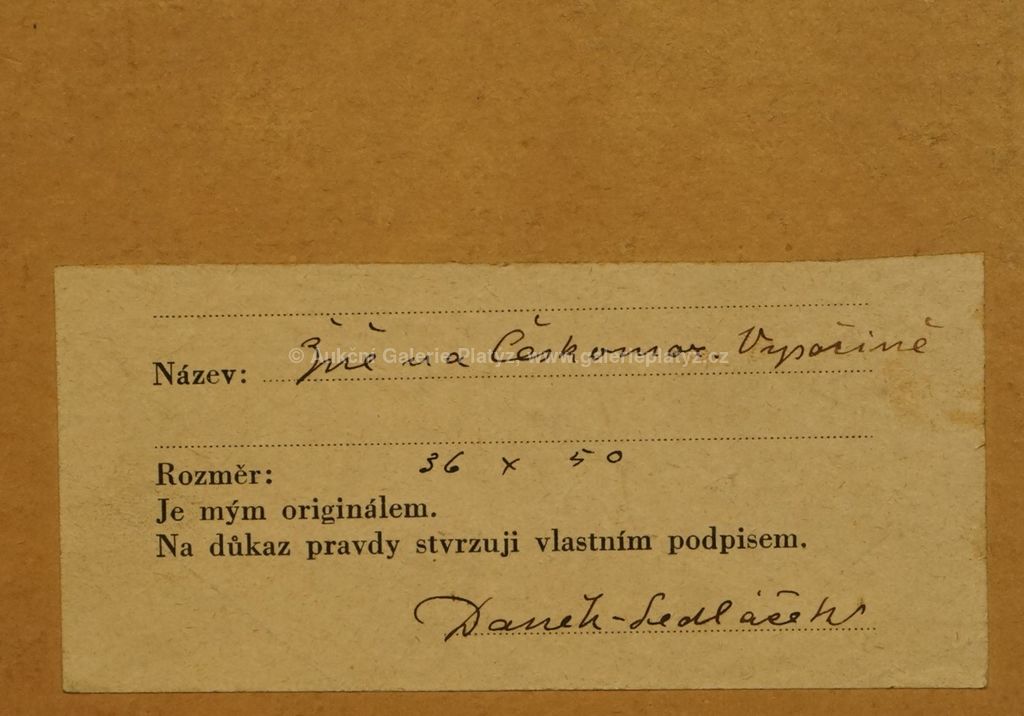 Název: Žně na Českomor Vysočině
© Aukční Galerie Platýz, www.galerieplatyz.cz
Rozměr: 36 x 50
Je mým originálem.
Na důkaz pravdy stvrzuji vlastním podpisem.
Daněk-Sedláček